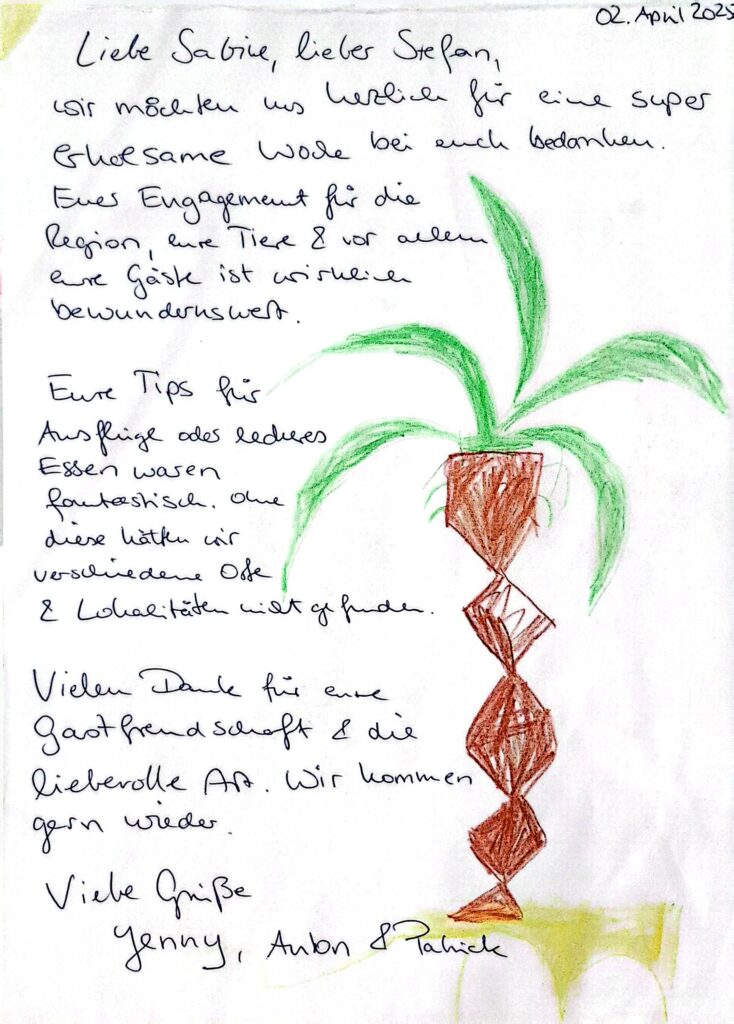 02. April 2025
Liebe Sabine, lieber Stefan,
wir möchten uns herzlich für eine super
erholsame Woche bei euch bedanken.
Euer Engagement für die
Region, eure Tiere & vor allem
eure Gäste ist wirklich
bewundernswert.
Eure Tips für
Ausflüge oder leckeres
Essen waren
fantastisch. Ohne
diese hätten wir
verschiedene Orte
& Lokalitäten nicht gefunden.
Vielen Dank für eure
Gastfreundschaft & die
liebevolle Art. Wir kommen
gern wieder.
Viele Grüße
Jenny, Anton & Patrick